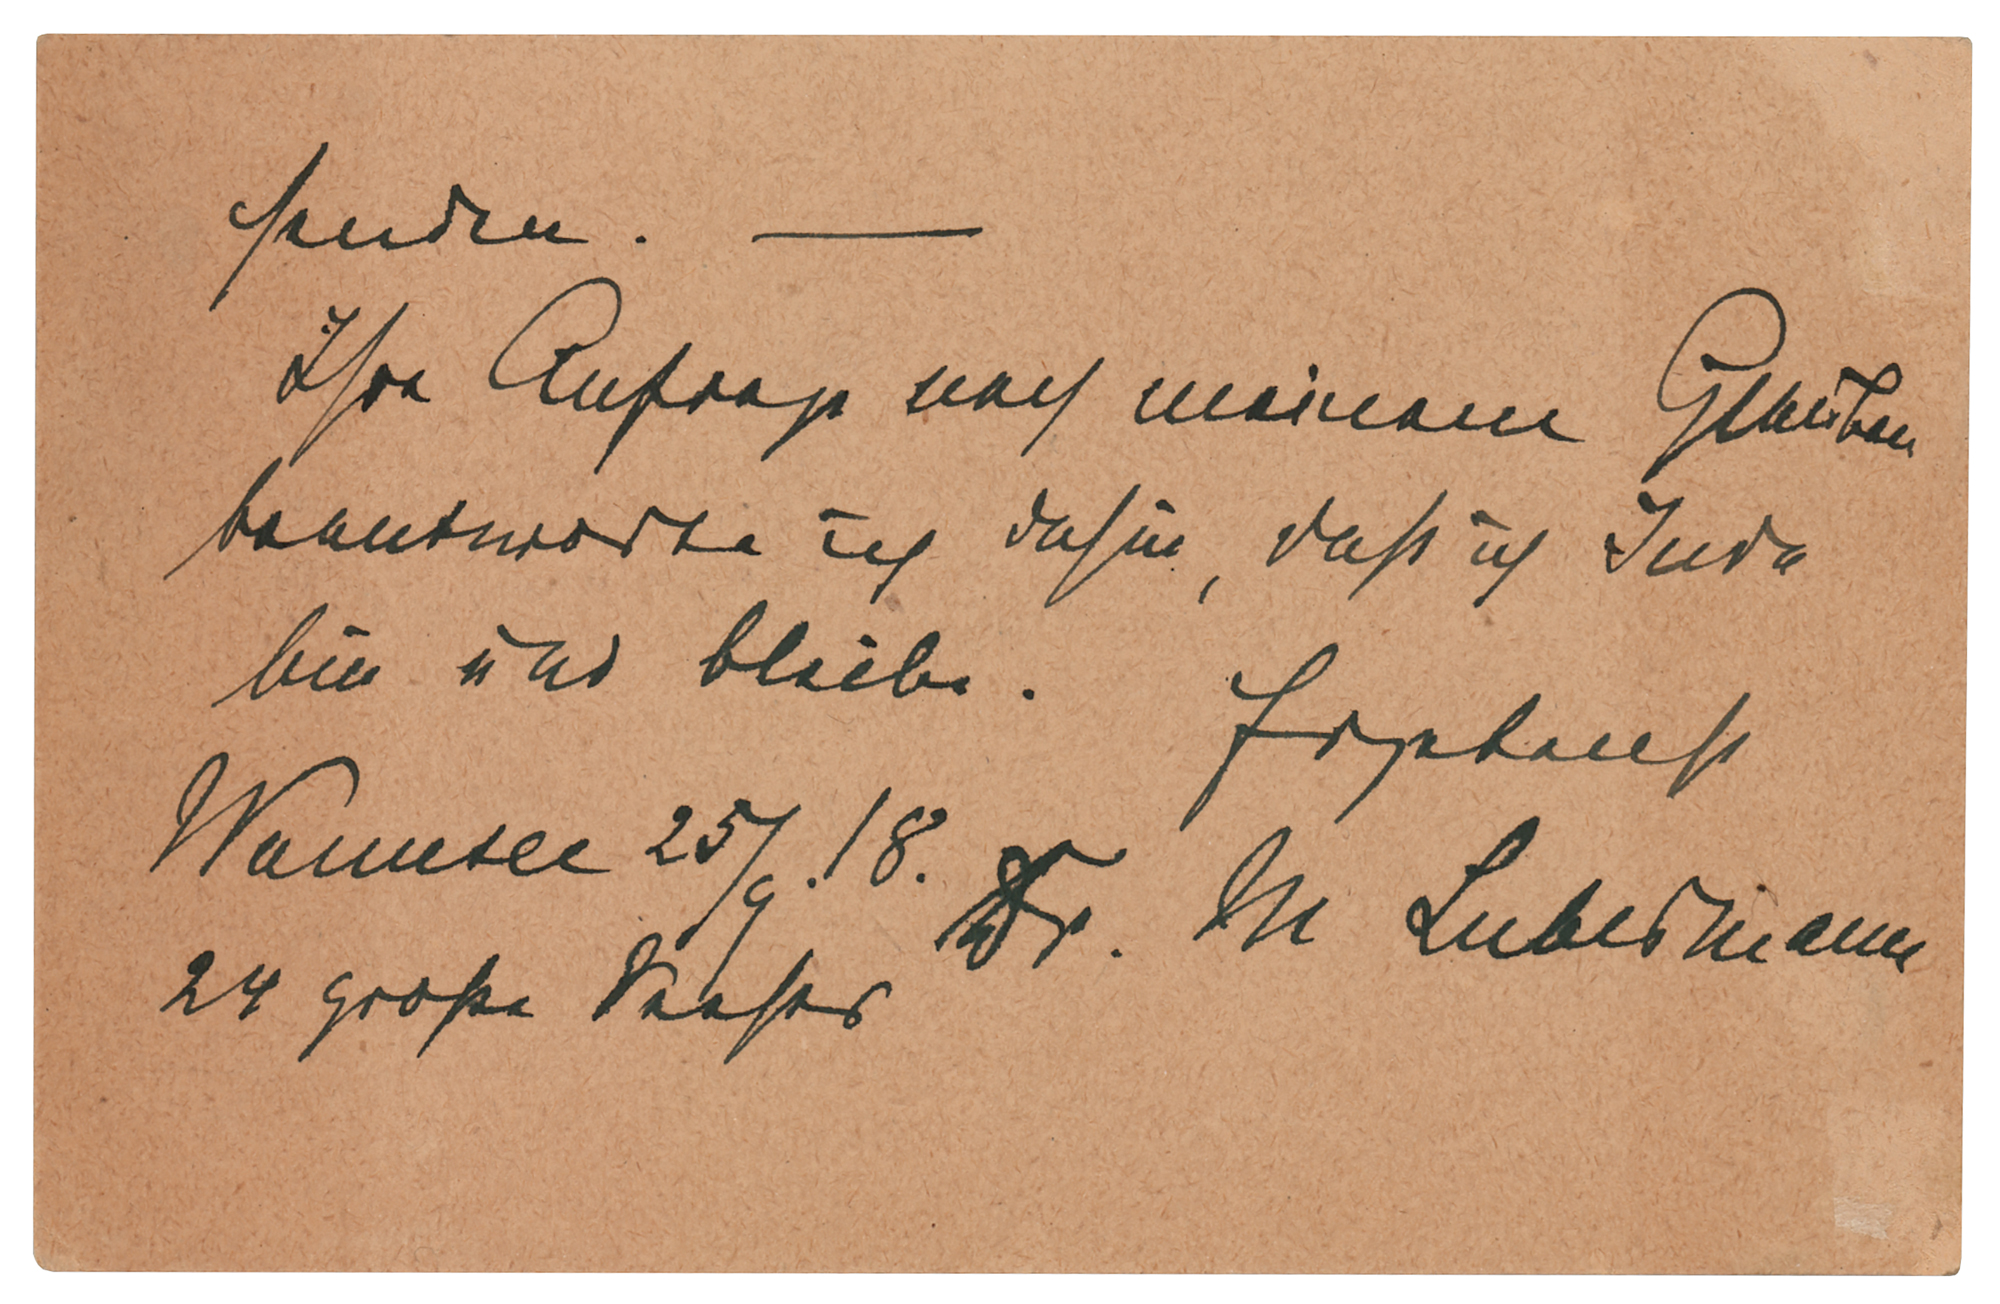 senden. —
Ihre Anfrage nach meinem Glauben
beantworte ich dahin, daß ich Jude
bin und bleibe.
ergebenst
Wannsee 25/9.18. Dr. M Liebermann
24 große Seestr